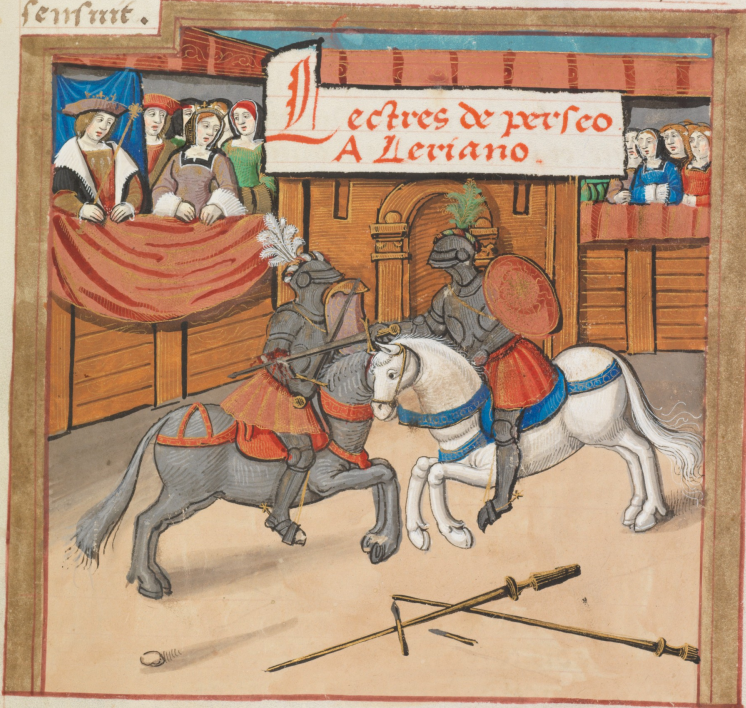 sensuit.
Lectres de perseo
A Leriano.